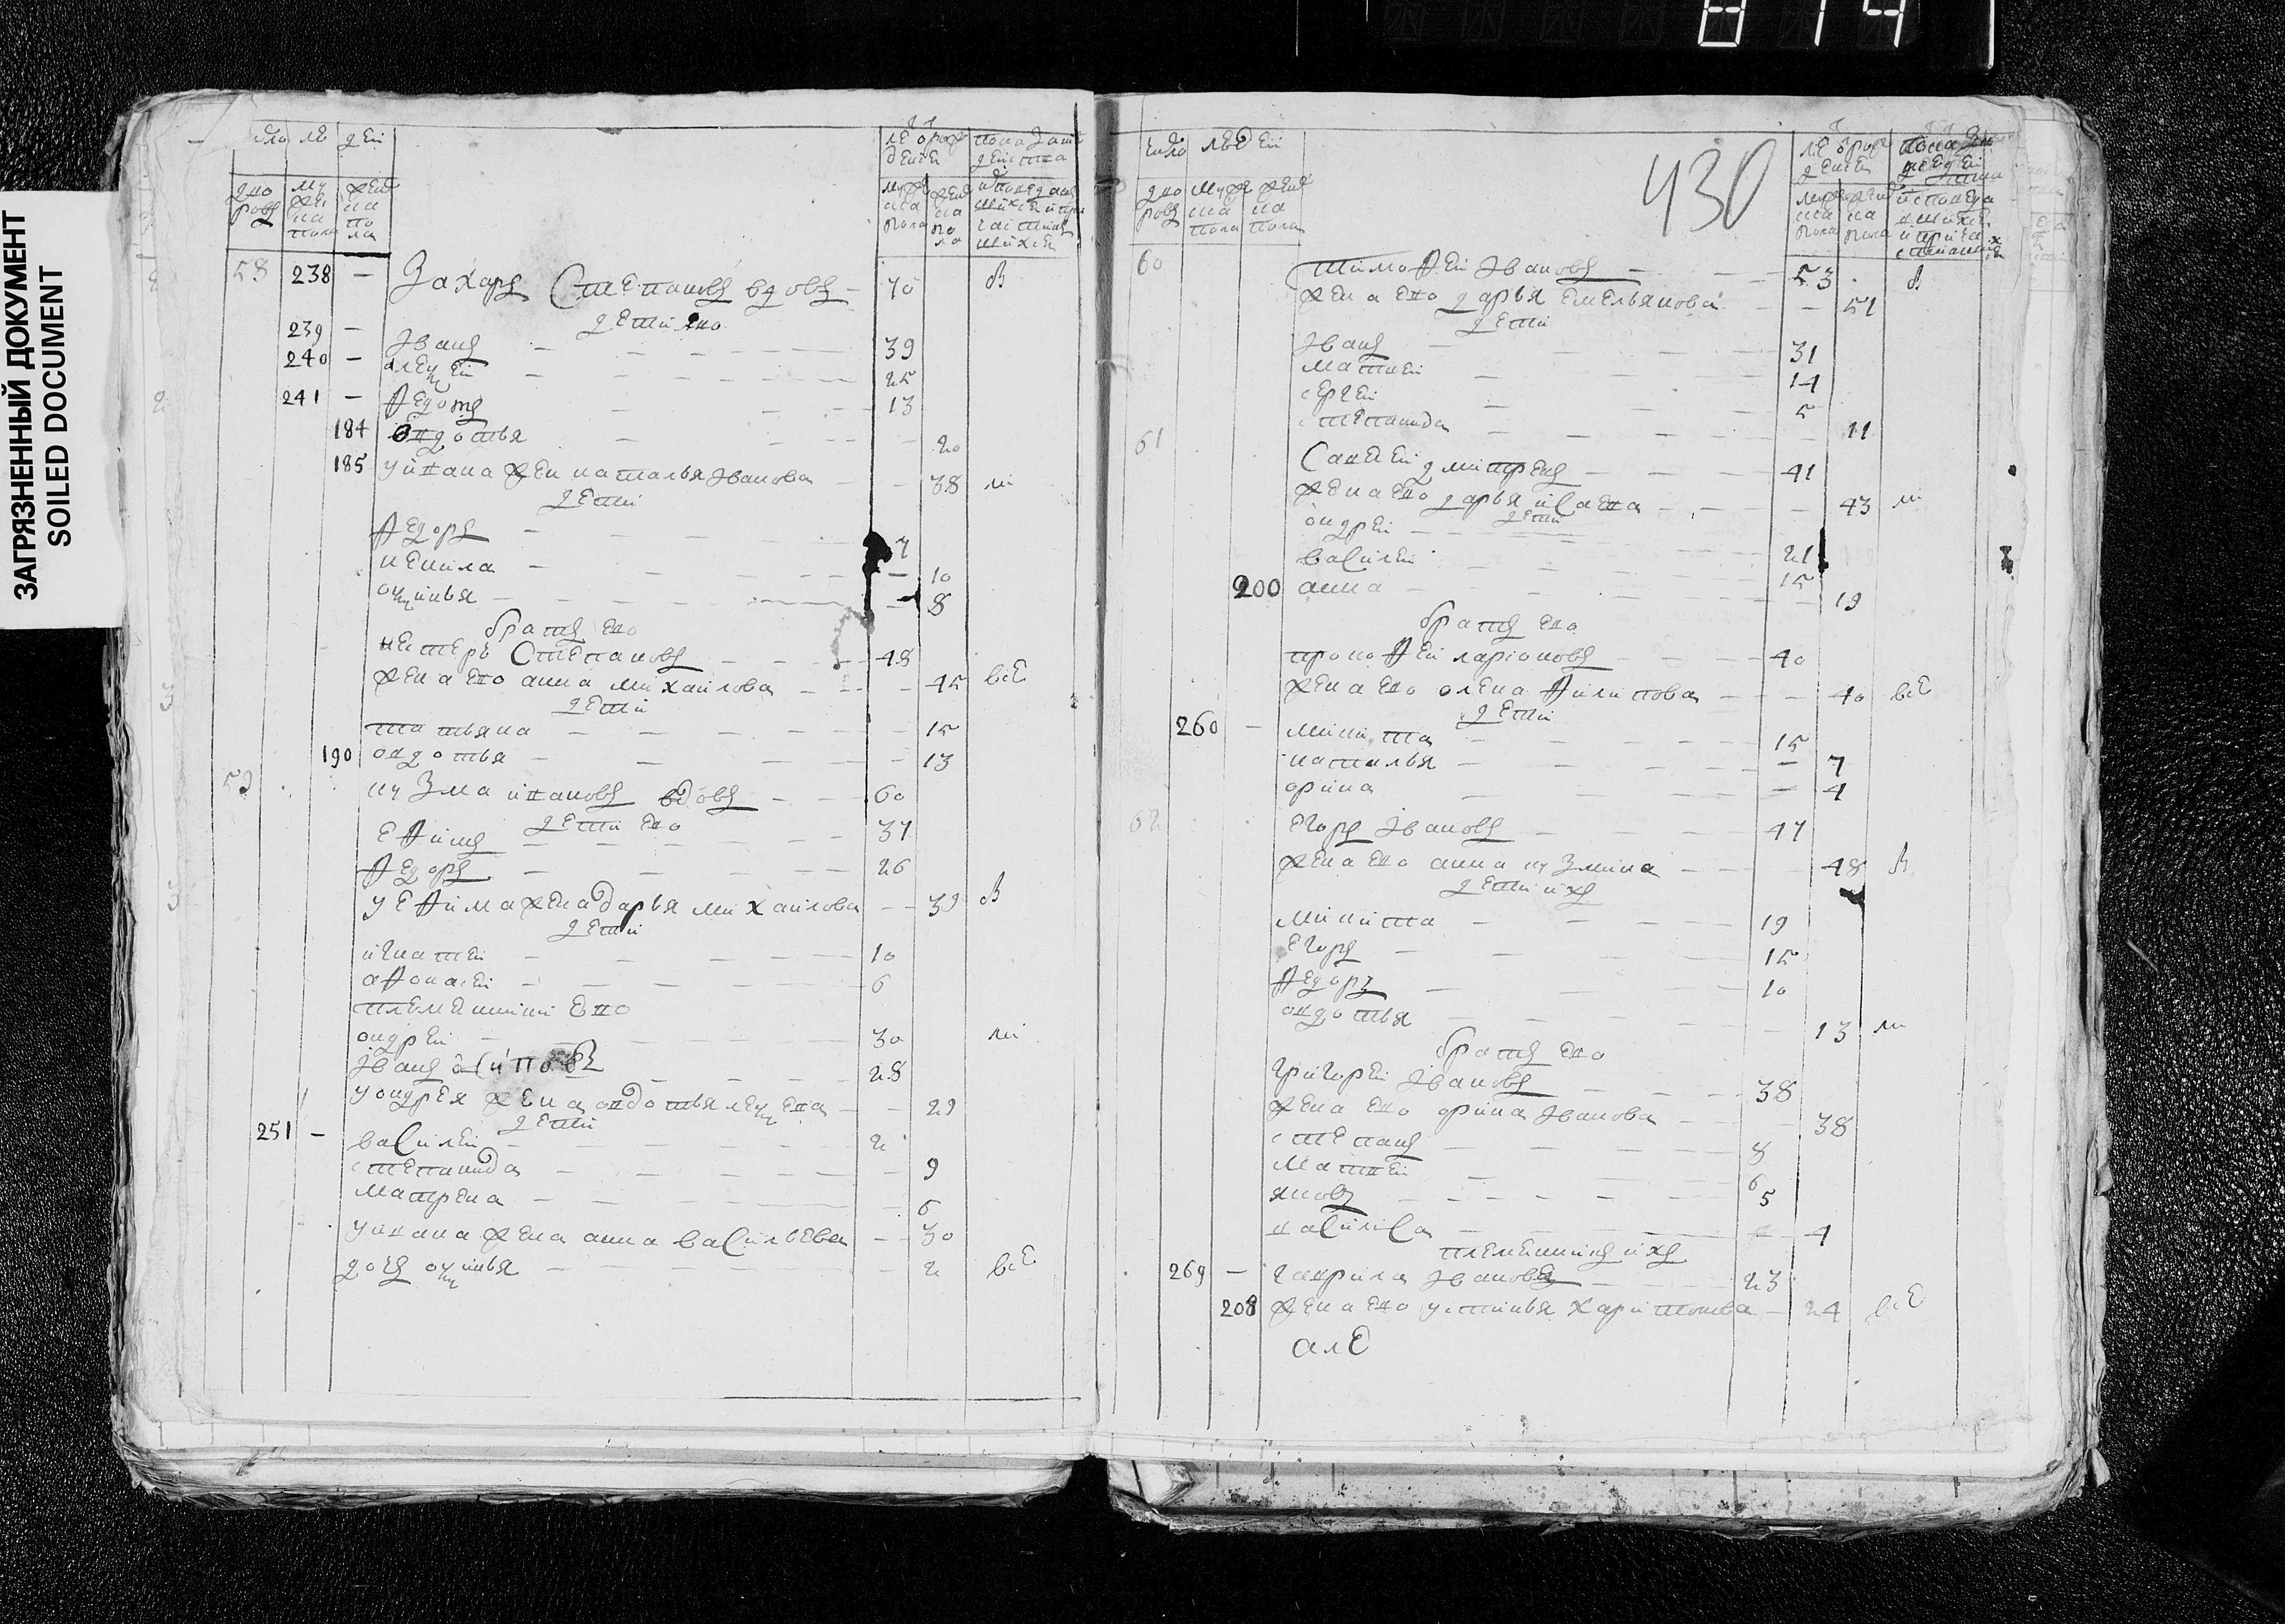 814
ЗАГРЯЗНЕННЫЙ ДОКУМЕНТ
SOILED DOCUMENT
число лю дей
дво ровъ
му жес ка пола
жен ска по ла
58 238 — Захаръ Степановъ вдовъ — 70
дети ево
239 — Иванъ 39
240 — алексей 25
241 — Федотъ 13
184 овдотья 20
185 у ивана жен наталья Иванова 38
дети
Федоръ 7
ненила 10
оксинья 8
братъ ево
нестеръ Степановъ 48
жена ево анна михаилова 45 все
дети
татьяна 15
190 овдотья 13
59 кузма ивановъ вдовъ 60
дети ево
ефимъ 37
Федоръ 26
у ефима жена дарья михаилова 39
дети
игнатей 10
афонасей 6
племянники ево
ондрей 30
Иванъ осиповъ 28
у ондрея жена овдотья алексеева 29
дети
251 — василей 2
степанида 9
матрена 6
у ивана жена анна васильева 30
дочь оксинья 2 все
число людей
430
дво ровъ
муже ска пола
жен ска пола
60 тимофей Ивановъ 53
жена ево дарья емельянова 51
дети
Иванъ 31
матвей 14
сергей 5
степанида 11
61 Савелей дмитревъ 41
жена ево дарья исаева 43
дети
ондрей 21
василей 15
200 анна 19
братъ ево
прокофей ларионовъ 40
жена ево олена филипова 40 все
дети
260 — микита 15
наталья — 7
орина — 4
62 егоръ Ивановъ 47
жена ево анна кузмина 48
дети ихъ
микита 19
егоръ 15
Федоръ 10
овдотья 13
братъ ево
григорей Ивановъ 38
жена ево орина Иванова 38
степанъ 8
матвей 6
яковъ 5
василиса 4
племянникъ ихъ
269 — гаврила Ивановъ 23
208 жена ево устинья харитонова — 24 все
але